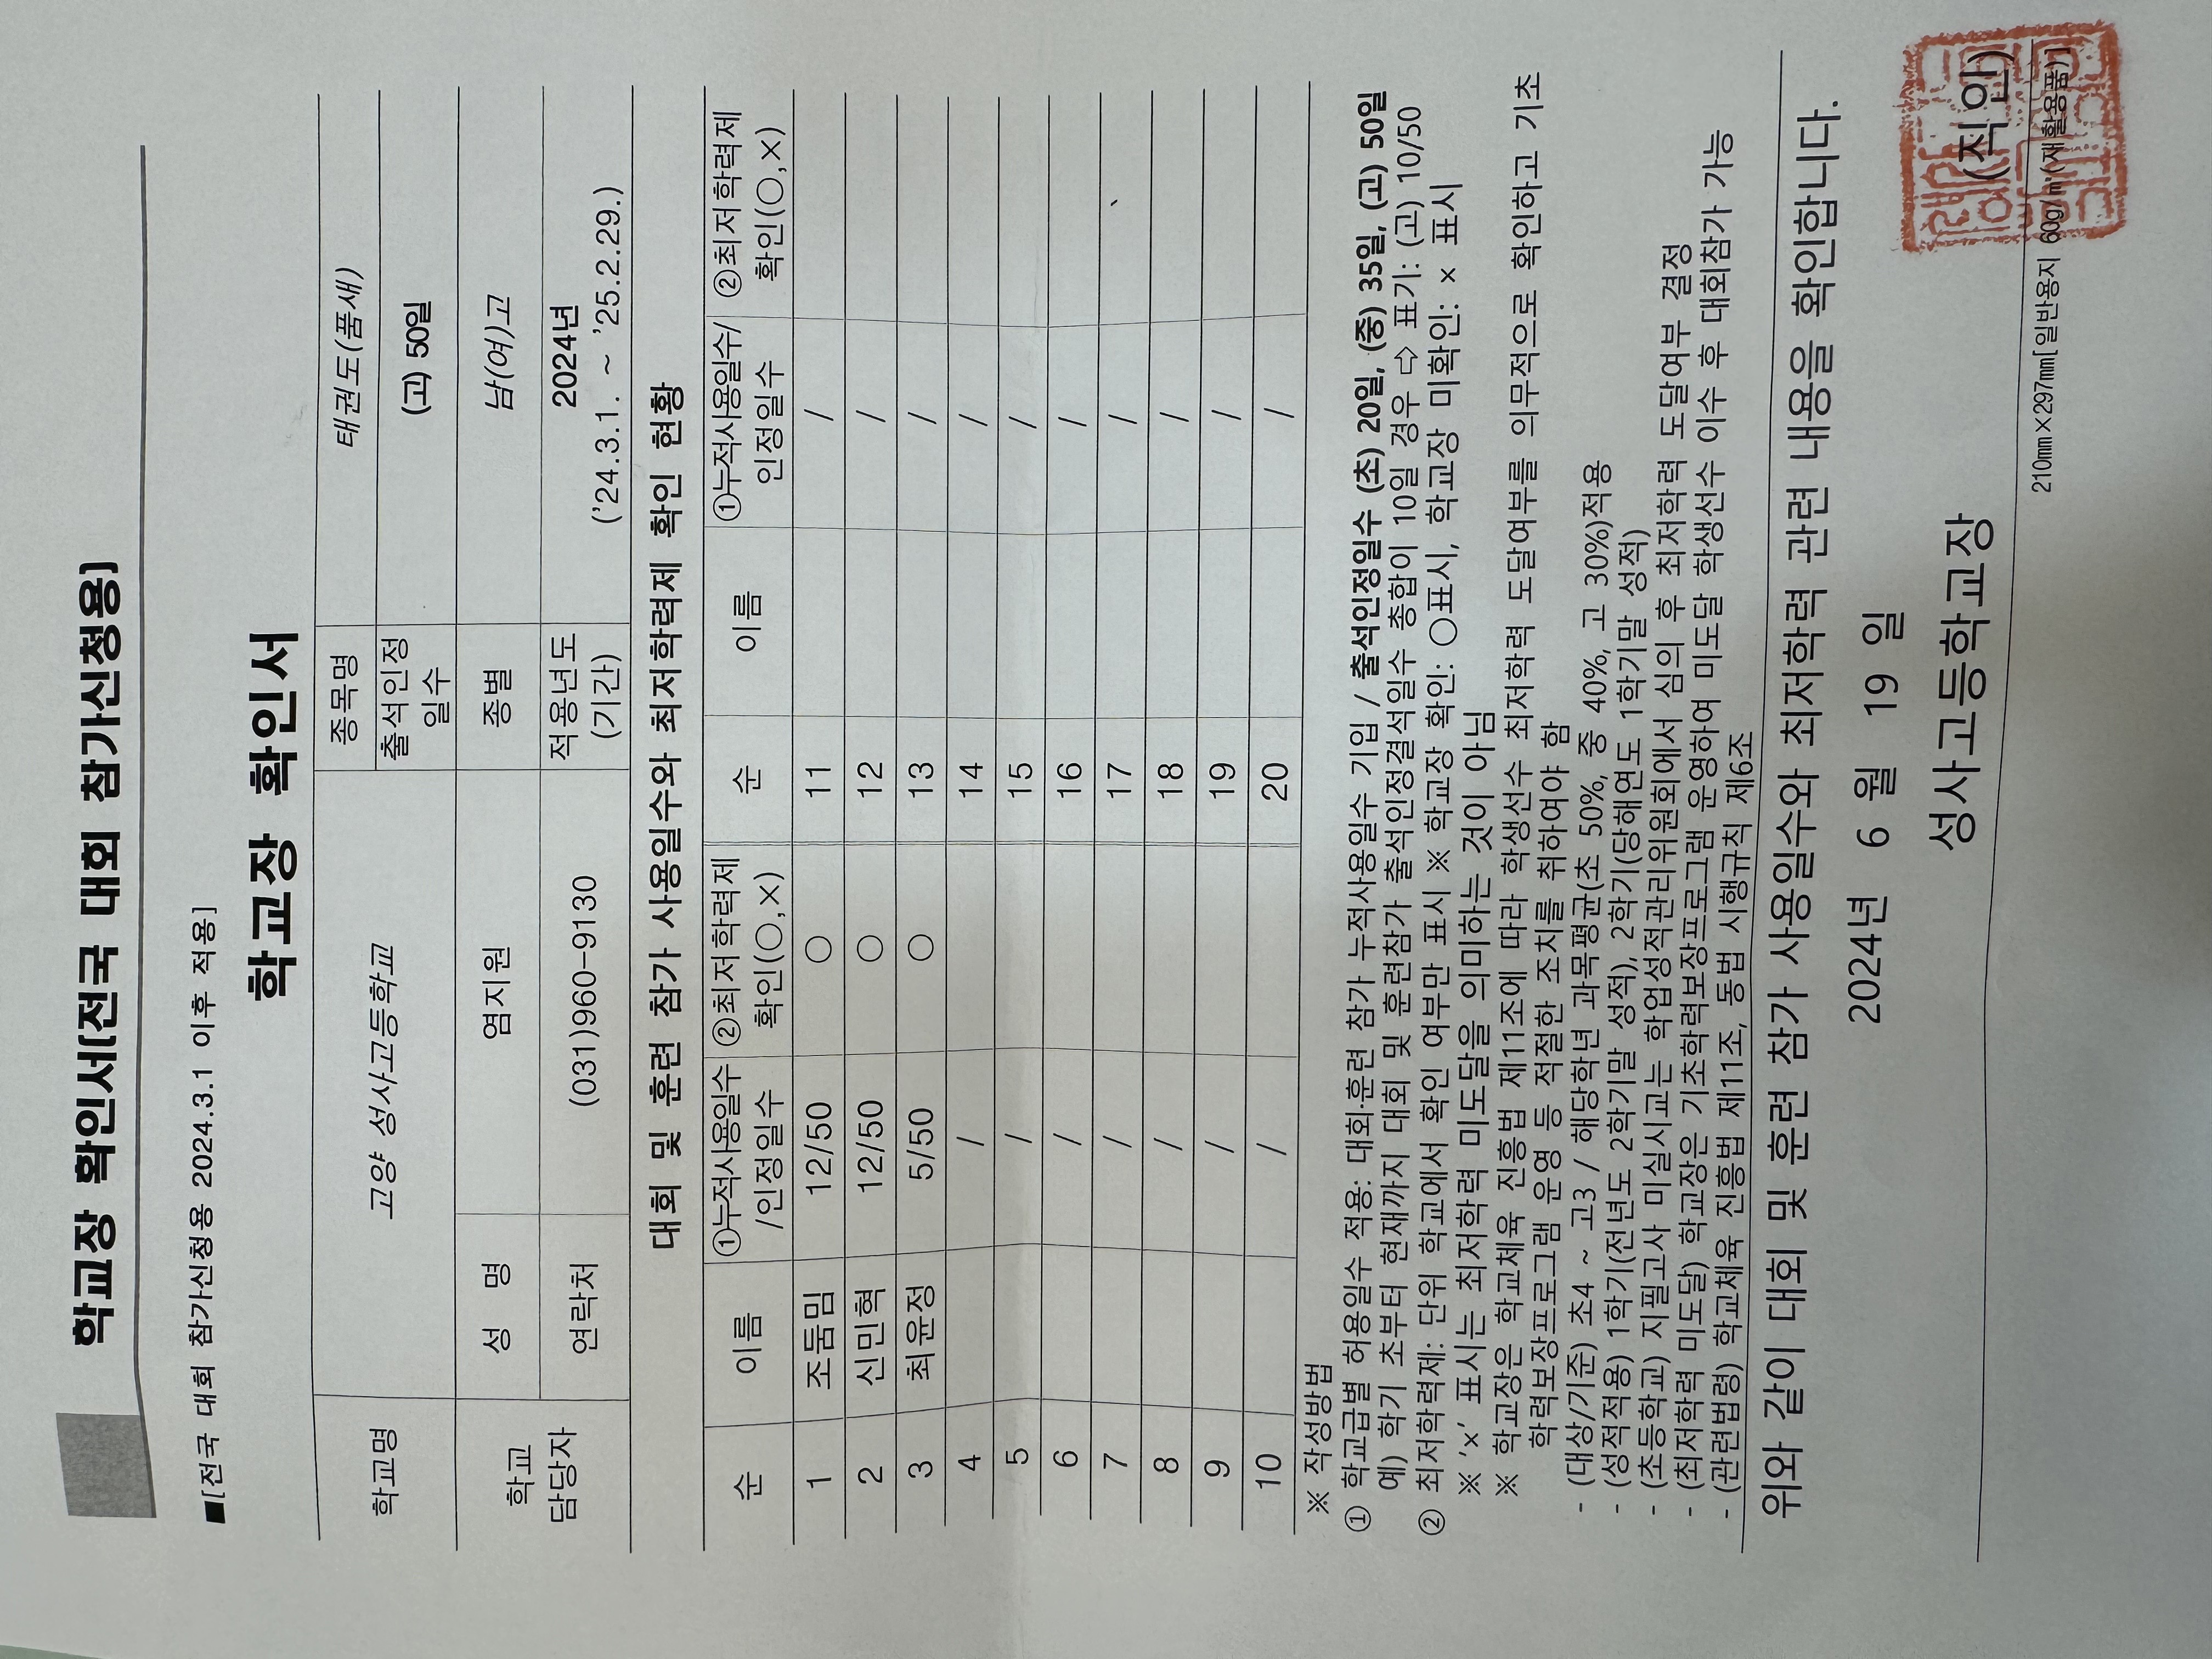 학교장 확인서[전국 대회 참가신청용]
■[전국 대회 참가신청용 2024.3.1 이후 적용]
학교장 확인서
학교명 고양 성사고등학교 종목명 태권도(품새)
출석인정일수 (고) 50일
학교 담당자 성 명 염지원 종별 남(여)고
연락처 (031)960-9130 적용년도(기간) 2024년 ('24.3.1. ~ '25.2.29.)
대회 및 훈련 참가 사용일수와 최저학력제 확인 현황
순 이름 ①누적사용일수/인정일수 ②최저학력제 확인(○,×) 순 이름 ①누적사용일수/인정일수 ②최저학력제 확인(○,×)
1 조둠밈 12/50 ○ 11 /
2 신민혁 12/50 ○ 12 /
3 최윤정 5/50 ○ 13 /
4 / 14 /
5 / 15 /
6 / 16 /
7 / 17 /
8 / 18 /
9 / 19 /
10 / 20 /
※ 작성방법
① 학교급별 허용일수 적용: 대회·훈련 참가 누적사용일수 기입 / 출석인정일수 (초) 20일, (중) 35일, (고) 50일
예) 학기 초부터 현재까지 대회 및 훈련참가 출석인정결석일수 총합이 10일 경우 ⇨ 표기: (고) 10/50
② 최저학력제: 단위 학교에서 확인 여부만 표시 ※ 학교장 확인: ○표시, 학교장 미확인: × 표시
※ '×' 표시는 최저학력 미도달을 의미하는 것이 아님
※ 학교장은 학교체육 진흥법 제11조에 따라 학생선수 최저학력 도달여부를 의무적으로 확인하고 기초
학력보장프로그램 운영 등 적절한 조치를 취하여야 함
- (대상/기준) 초4 ~ 고3 / 해당학년 과목평균(초 50%, 중 40%, 고 30%)적용
- (성적적용) 1학기(전년도 2학기말 성적), 2학기(당해연도 1학기말 성적)
- (초등학교) 지필고사 미실시교는 학업성적관리위원회에서 심의 후 최저학력 도달여부 결정
- (최저학력 미도달) 학교장은 기초학력보장프로그램 운영하여 미도달 학생선수 이수 후 대회참가 가능
- (관련법령) 학교체육 진흥법 제11조, 동법 시행규칙 제6조
위와 같이 대회 및 훈련 참가 사용일수와 최저학력 관련 내용을 확인합니다.
2024년 6 월 19 일
성사고등학교장 (직인)
210㎜×297㎜[일반용지 60g/㎡(재활용품)]